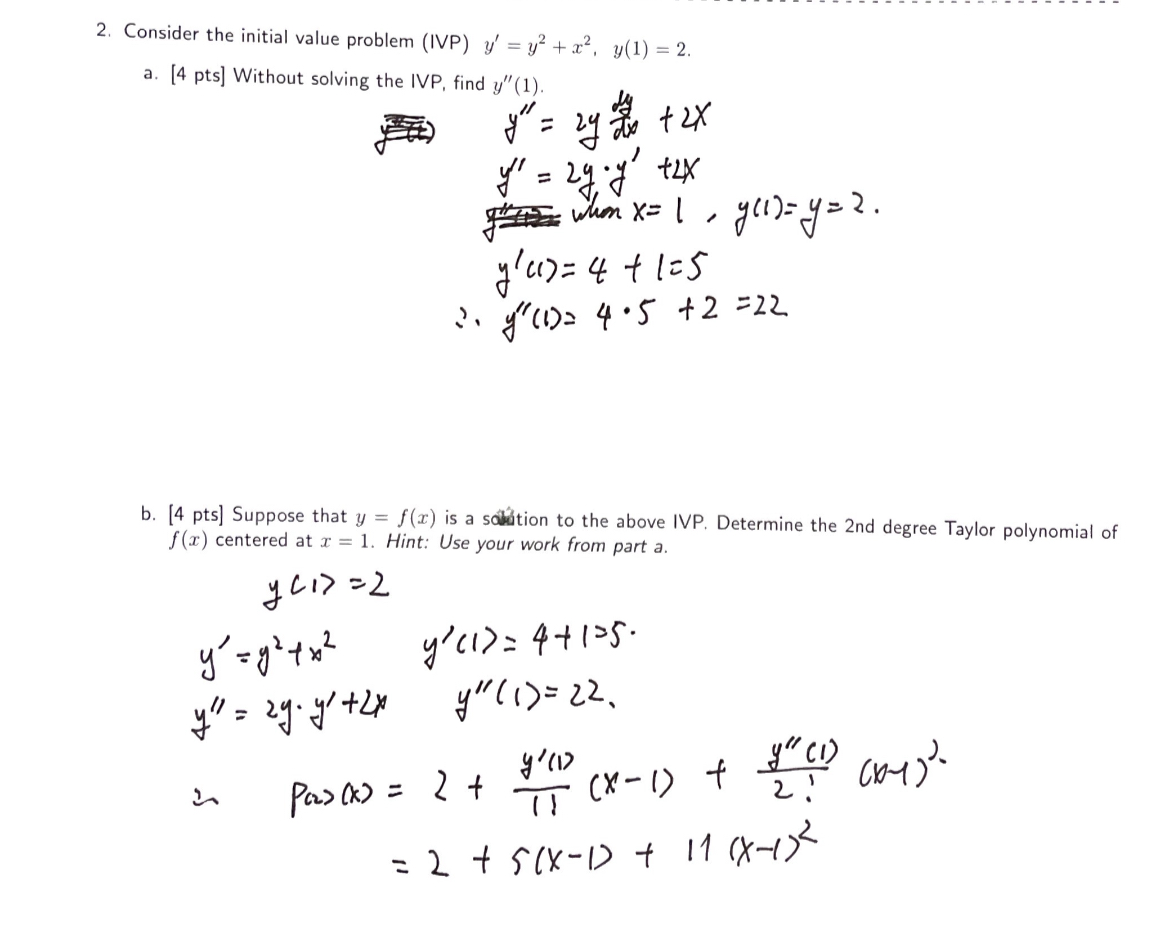 2. Consider the initial value problem (IVP) y′ = y² + x², y(1) = 2.
a. [4 pts] Without solving the IVP, find y″(1).
y″ = 2y dy/dx + 2x
y″ = 2y·y′ + 2x
when x = 1, y(1) = y = 2.
y′(1) = 4 + 1 = 5
∴ y″(1) = 4·5 + 2 = 22
b. [4 pts] Suppose that y = f(x) is a solution to the above IVP. Determine the 2nd degree Taylor polynomial of
f(x) centered at x = 1. Hint: Use your work from part a.
y(1) = 2
y′ = y² + x² y′(1) = 4 + 1 = 5.
y″ = 2y·y′ + 2x y″(1) = 22.
∴ P(2)(x) = 2 + y′(1)/1! (x-1) + y″(1)/2! (x-1)².
= 2 + 5(x-1) + 11(x-1)²